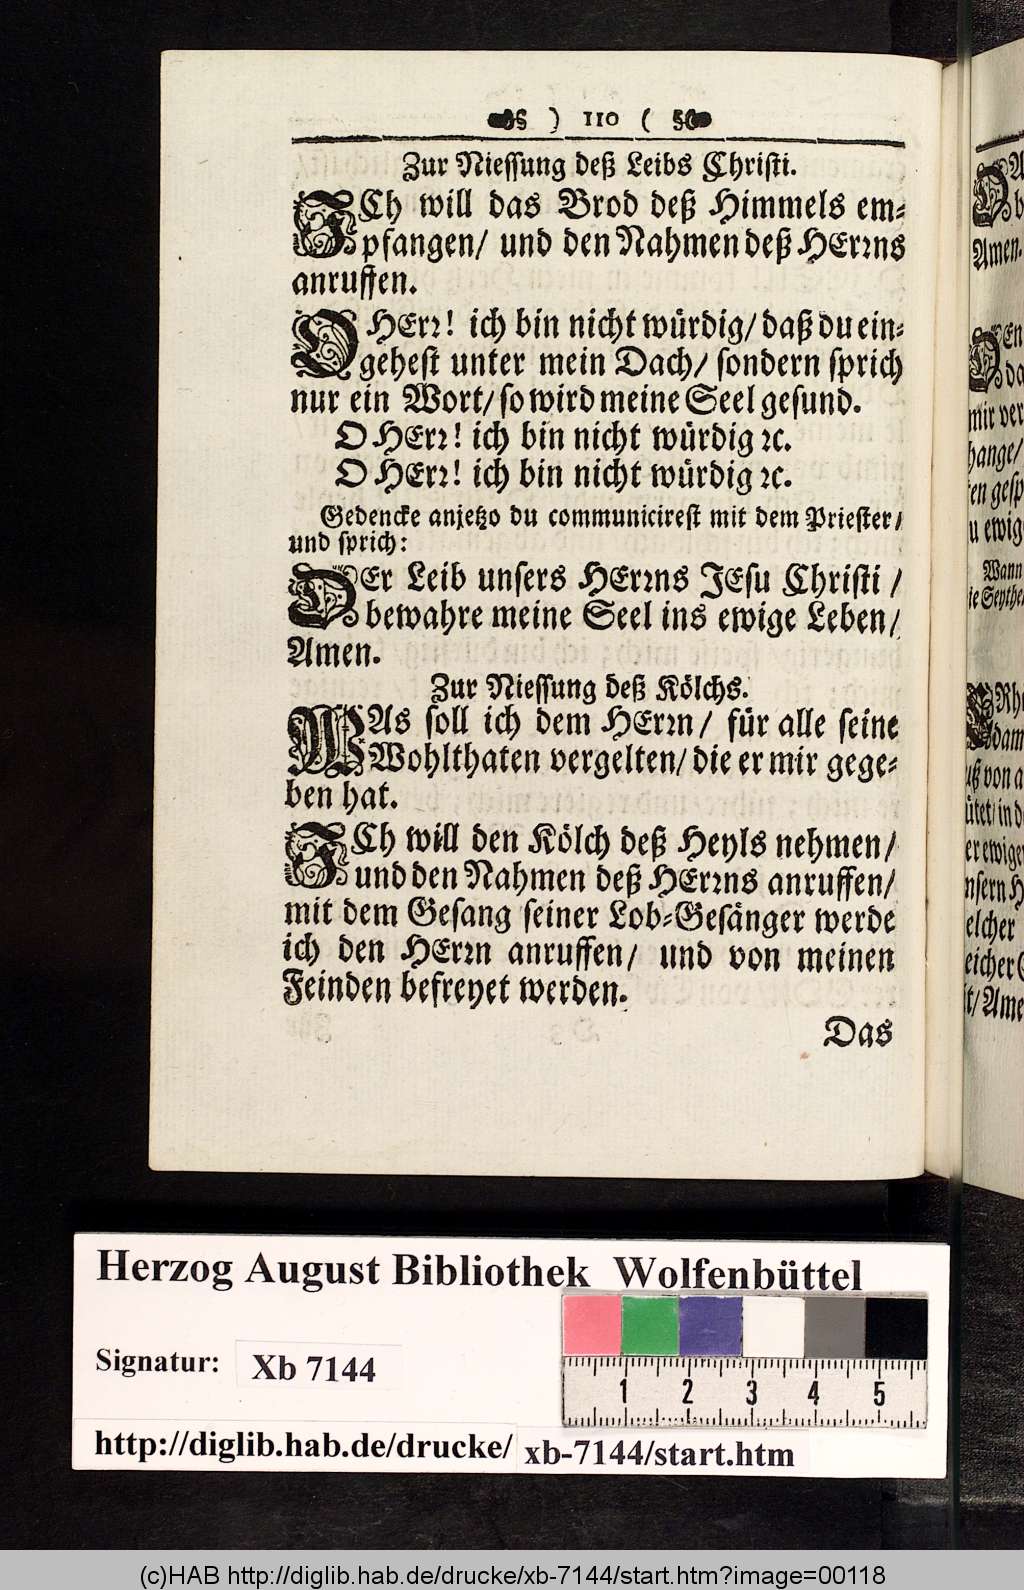 ) 110 (
Zur Niessung deß Leibs Christi.
JCh will das Brod deß Himmels em-
pfangen/ und den Nahmen deß HErrns
anruffen.
O HErr! ich bin nicht würdig/ daß du ein-
gehest unter mein Dach/ sondern sprich
nur ein Wort/ so wird meine Seel gesund.
O HErr! ich bin nicht würdig ꝛc.
O HErr! ich bin nicht würdig ꝛc.
Gedencke anjetzo du communicirest mit dem Priester/
und sprich:
DEr Leib unsers HErrns JEsu Christi /
bewahre meine Seel ins ewige Leben/
Amen.
Zur Niessung deß Kölchs.
WAs soll ich dem HErrn/ für alle seine
Wohlthaten vergelten/ die er mir gege-
ben hat.
JCh will den Kölch deß Heyls nehmen/
und den Nahmen deß HErrns anruffen/
mit dem Gesang seiner Lob-Gesänger werde
ich den HErrn anruffen/ und von meinen
Feinden befreyet werden.
Das
Amen.
mir ver
hange/
u ewig
Wann
dam
uß von a
elcher
t/ Ame
Herzog August Bibliothek Wolfenbüttel
Signatur: Xb 7144
1 2 3 4 5
http://diglib.hab.de/drucke/ xb-7144/start.htm
(c)HAB http://diglib.hab.de/drucke/xb-7144/start.htm?image=00118